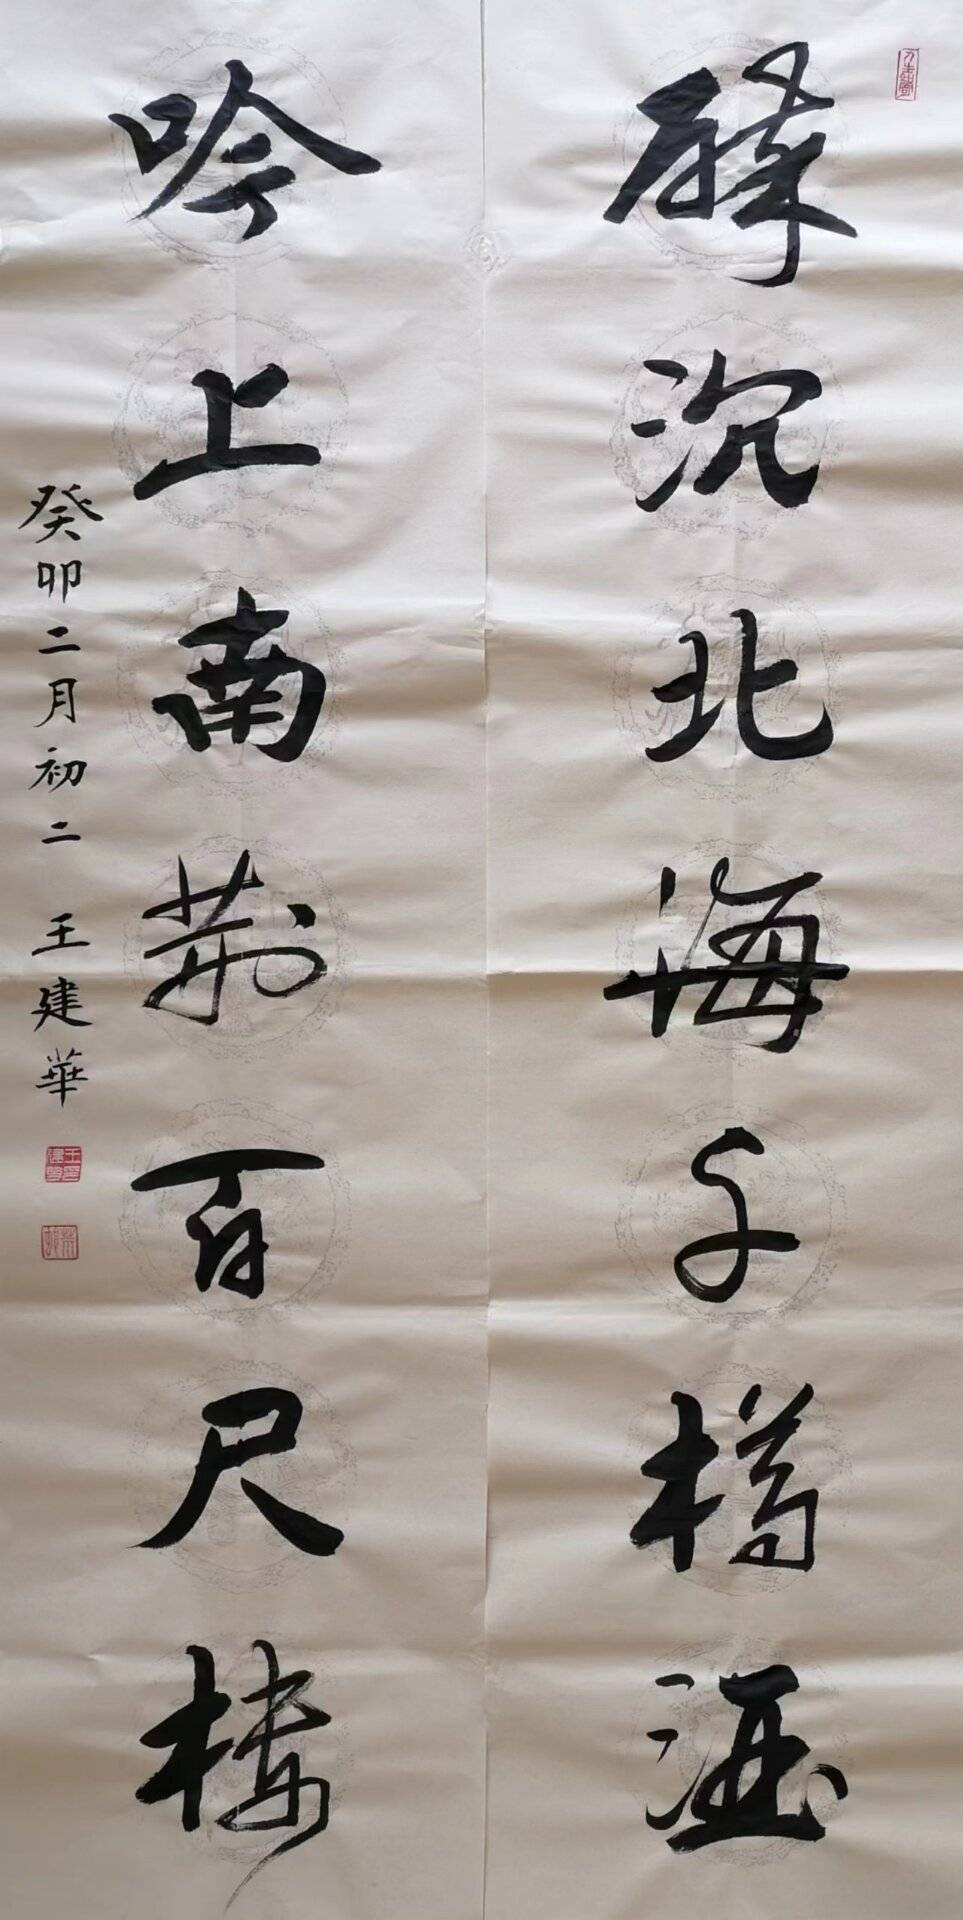 醉沉北海千樽酒
吟上南荆百尺楼
癸卯二月初二 王建華